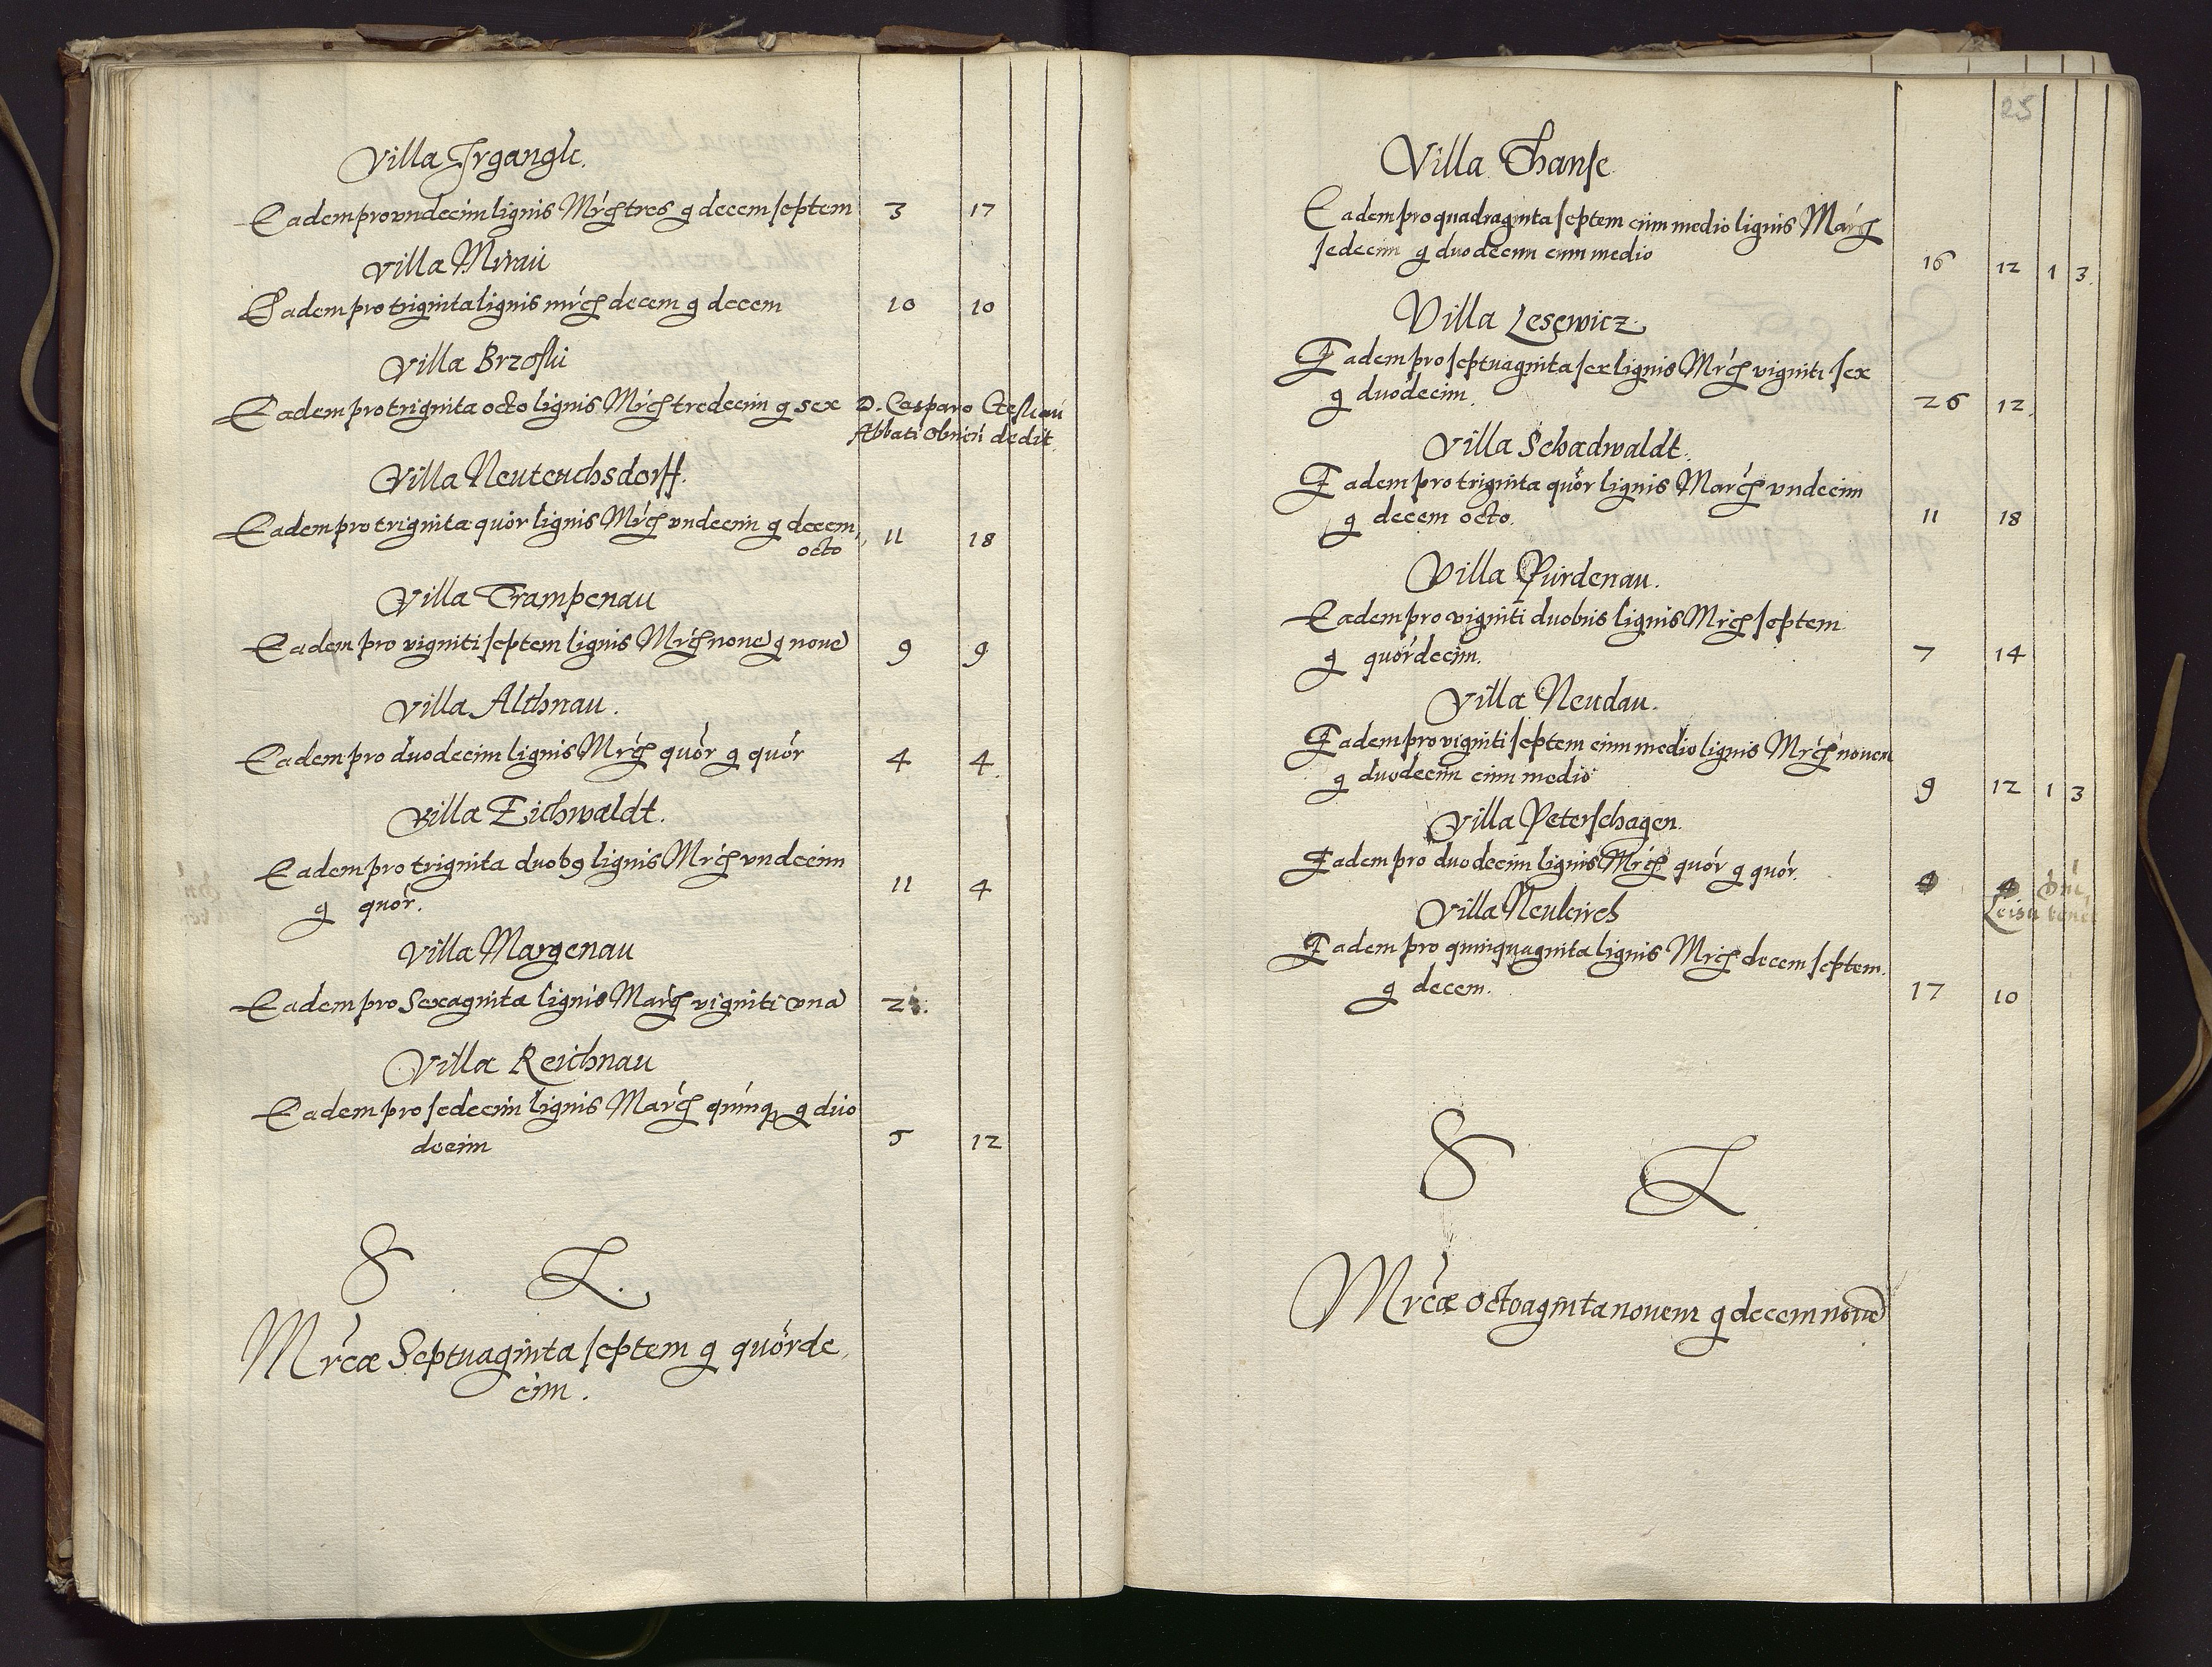 Villa Irgangk.
Eadem pro vndecim lignis Mrc̃ tres g decem septem 3 17
Villa Mirau
Eadem pro triginta lignis mrc̃ decem g decem 10 10
Villa Brzoski
Eadem pro triginta octo lignis Mrc̃ tredecim g sex D. Casparo
Abbati dedit
Villa Neuteuchsdorff.
Eadem pro triginta quor lignis Mrc̃ vndecim g decem
octo 11 18
Villa Trampenau
Eadem pro viginti septem lignis Mrc̃ noue g noue 9 9
Villa Althnau.
Eadem pro duodecim lignis Mrc̃ quor g quor 4 4.
Villa Eichwaldt.
Eadem pro triginta duobꝰ lignis Mrc̃ vndecim
g quor. 11 4
Villa Margenau
Eadem pro Sexaginta lignis Marc̃ viginti vna 21.
Villa Reichnau
Eadem pro sedecim lignis Marc̃ quinqꝫ g duo
decim 5 12
S L.
Mrcæ Septuaginta septem g quorde
cim.
25
Villa Thanse
Eadem pro quadraginta septem cum medio lignis Marc̃
sedecim g duodecim cum medio 16 12 1 3.
Villa Lesewicz.
Eadem pro septuaginta sex lignis Mrc̃ viginti sex
g duodecim. 26 12.
Villa Schadwaldt.
Eadem pro triginta quor lignis Marc̃ vndecim
g decem octo. 11 18
Villa Purdenau.
Eadem pro viginti duobus lignis Mrc̃ septem
g quordecim. 7 14
Villa Neudau.
Eadem pro viginti septem cum medio lignis Mrc̃ nouem
g duodecim cum medio 9 12 1 3
Villa Peterschagen.
Eadem pro duodecim lignis Mrc̃ quor g quor. 4 4
Villa Neukirch
Eadem pro quinquaginta lignis Mrc̃ decem septem.
g decem. 17 10
S L
Mrcæ octoaginta nouem g decem noue